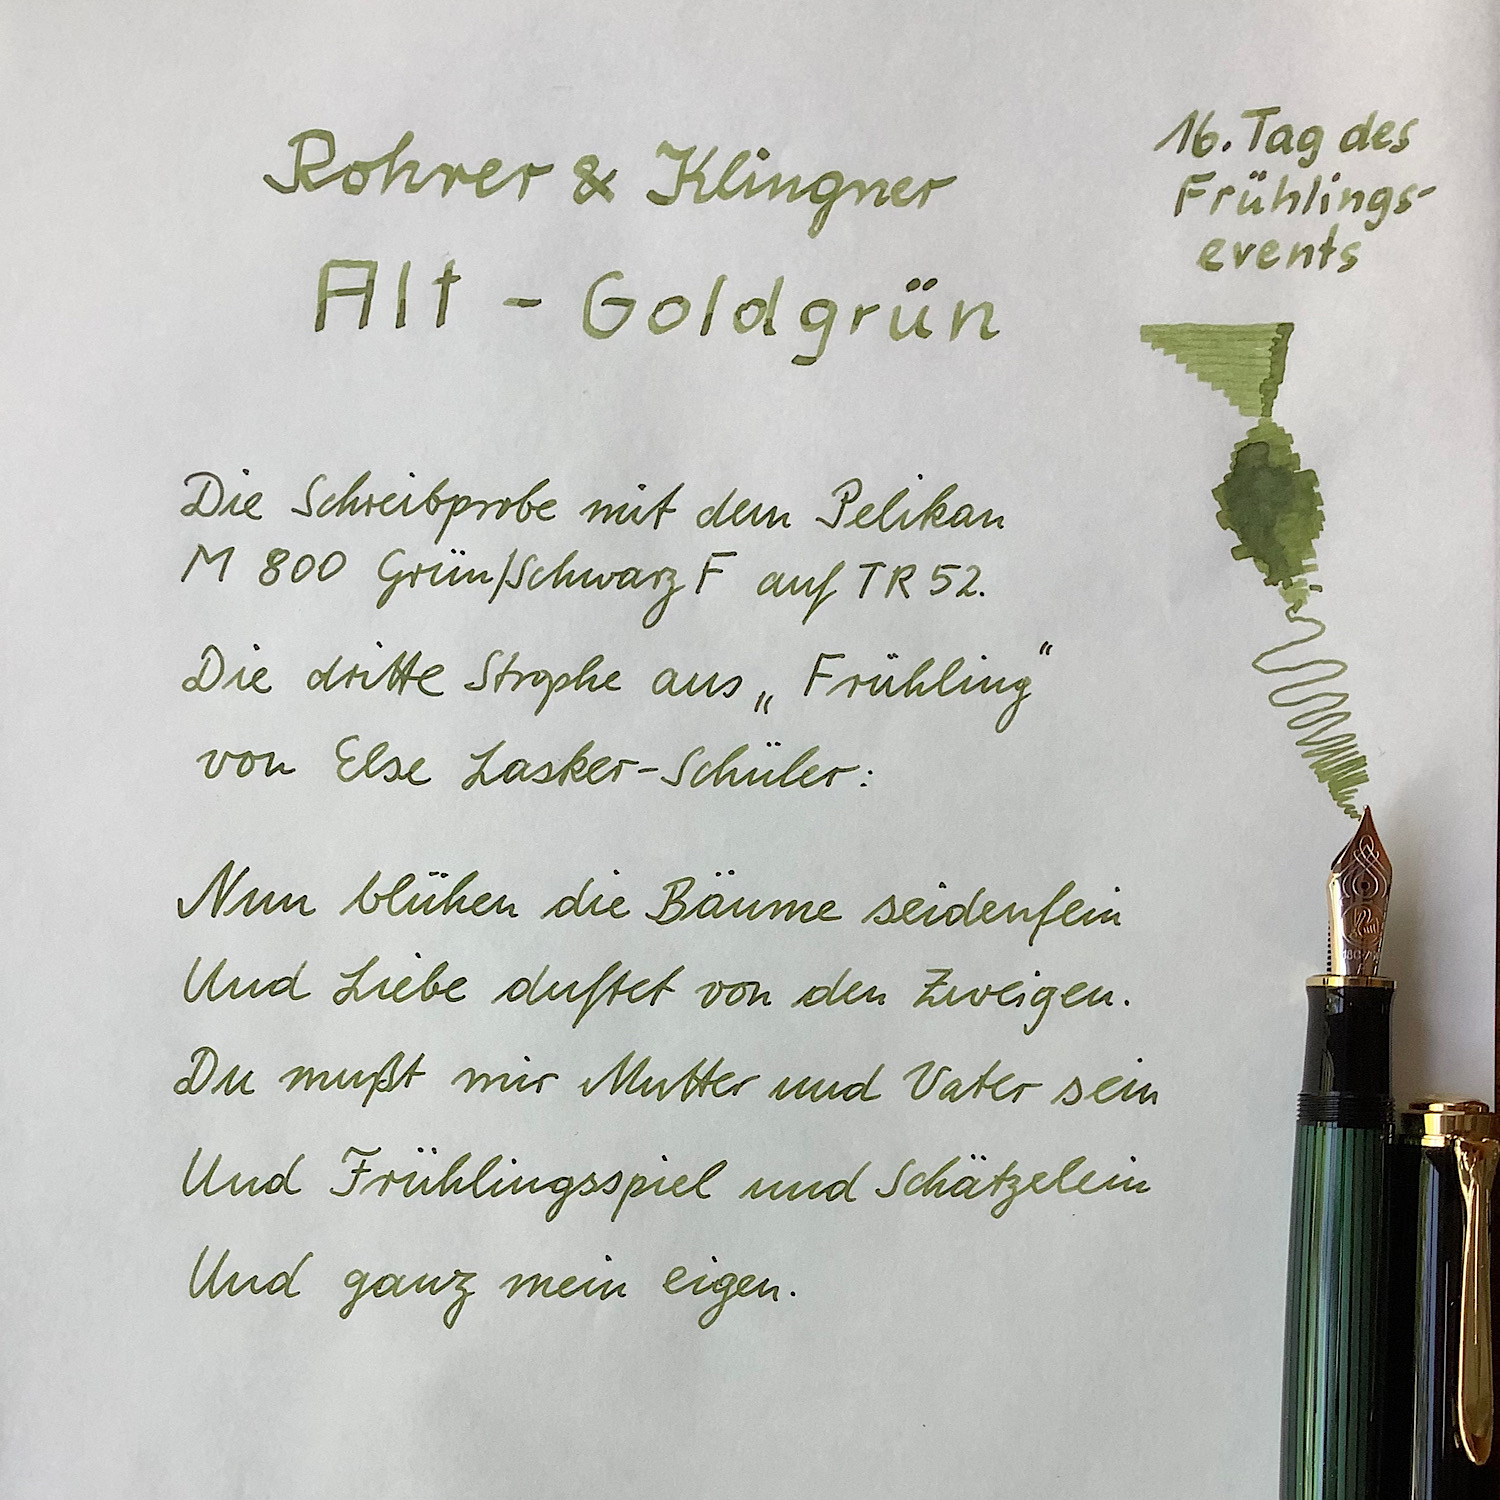 Rohrer & Klingner
Alt - Goldgrün
16. Tag des
Frühlings-
events
Die Schreibprobe mit dem Pelikan
M 800 Grün/Schwarz F auf TR 52.
Die dritte Strophe aus „Frühling“
von Else Lasker-Schüler:
Nun blühen die Bäume seidenfein
Und Liebe duftet von den Zweigen.
Du mußt mir Mutter und Vater sein
Und Frühlingsspiel und Schätzelein
Und ganz mein eigen.